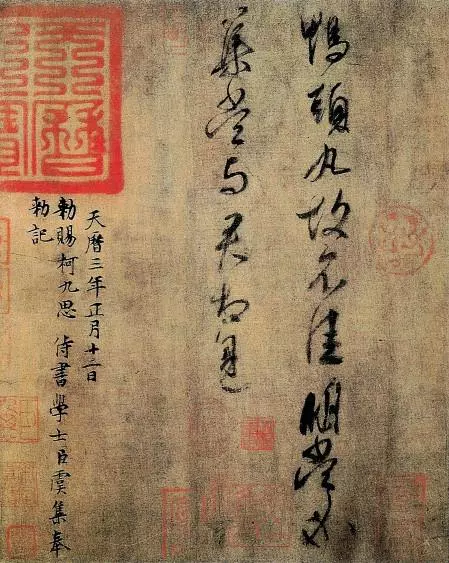 鴨頭丸故不佳明當必
集當與君相見
天曆三年正月十二日
勑賜柯九思侍書學士臣虞集奉
勑記